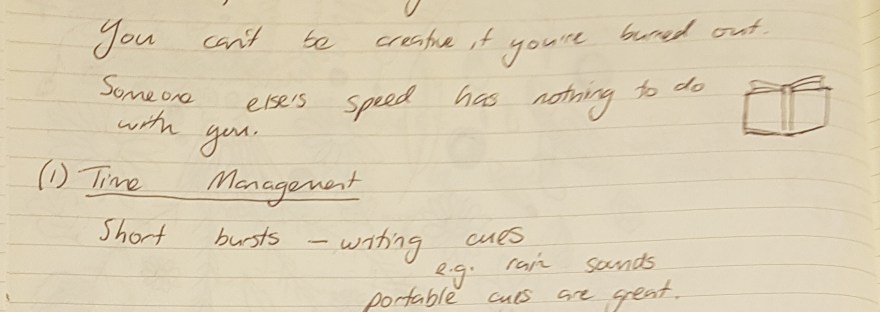 You can't be creative if you're burned out.
Someone else's speed has nothing to do
with you.
(1) Time Management
Short bursts – writing cues
e.g. rain sounds
portable cues are great.